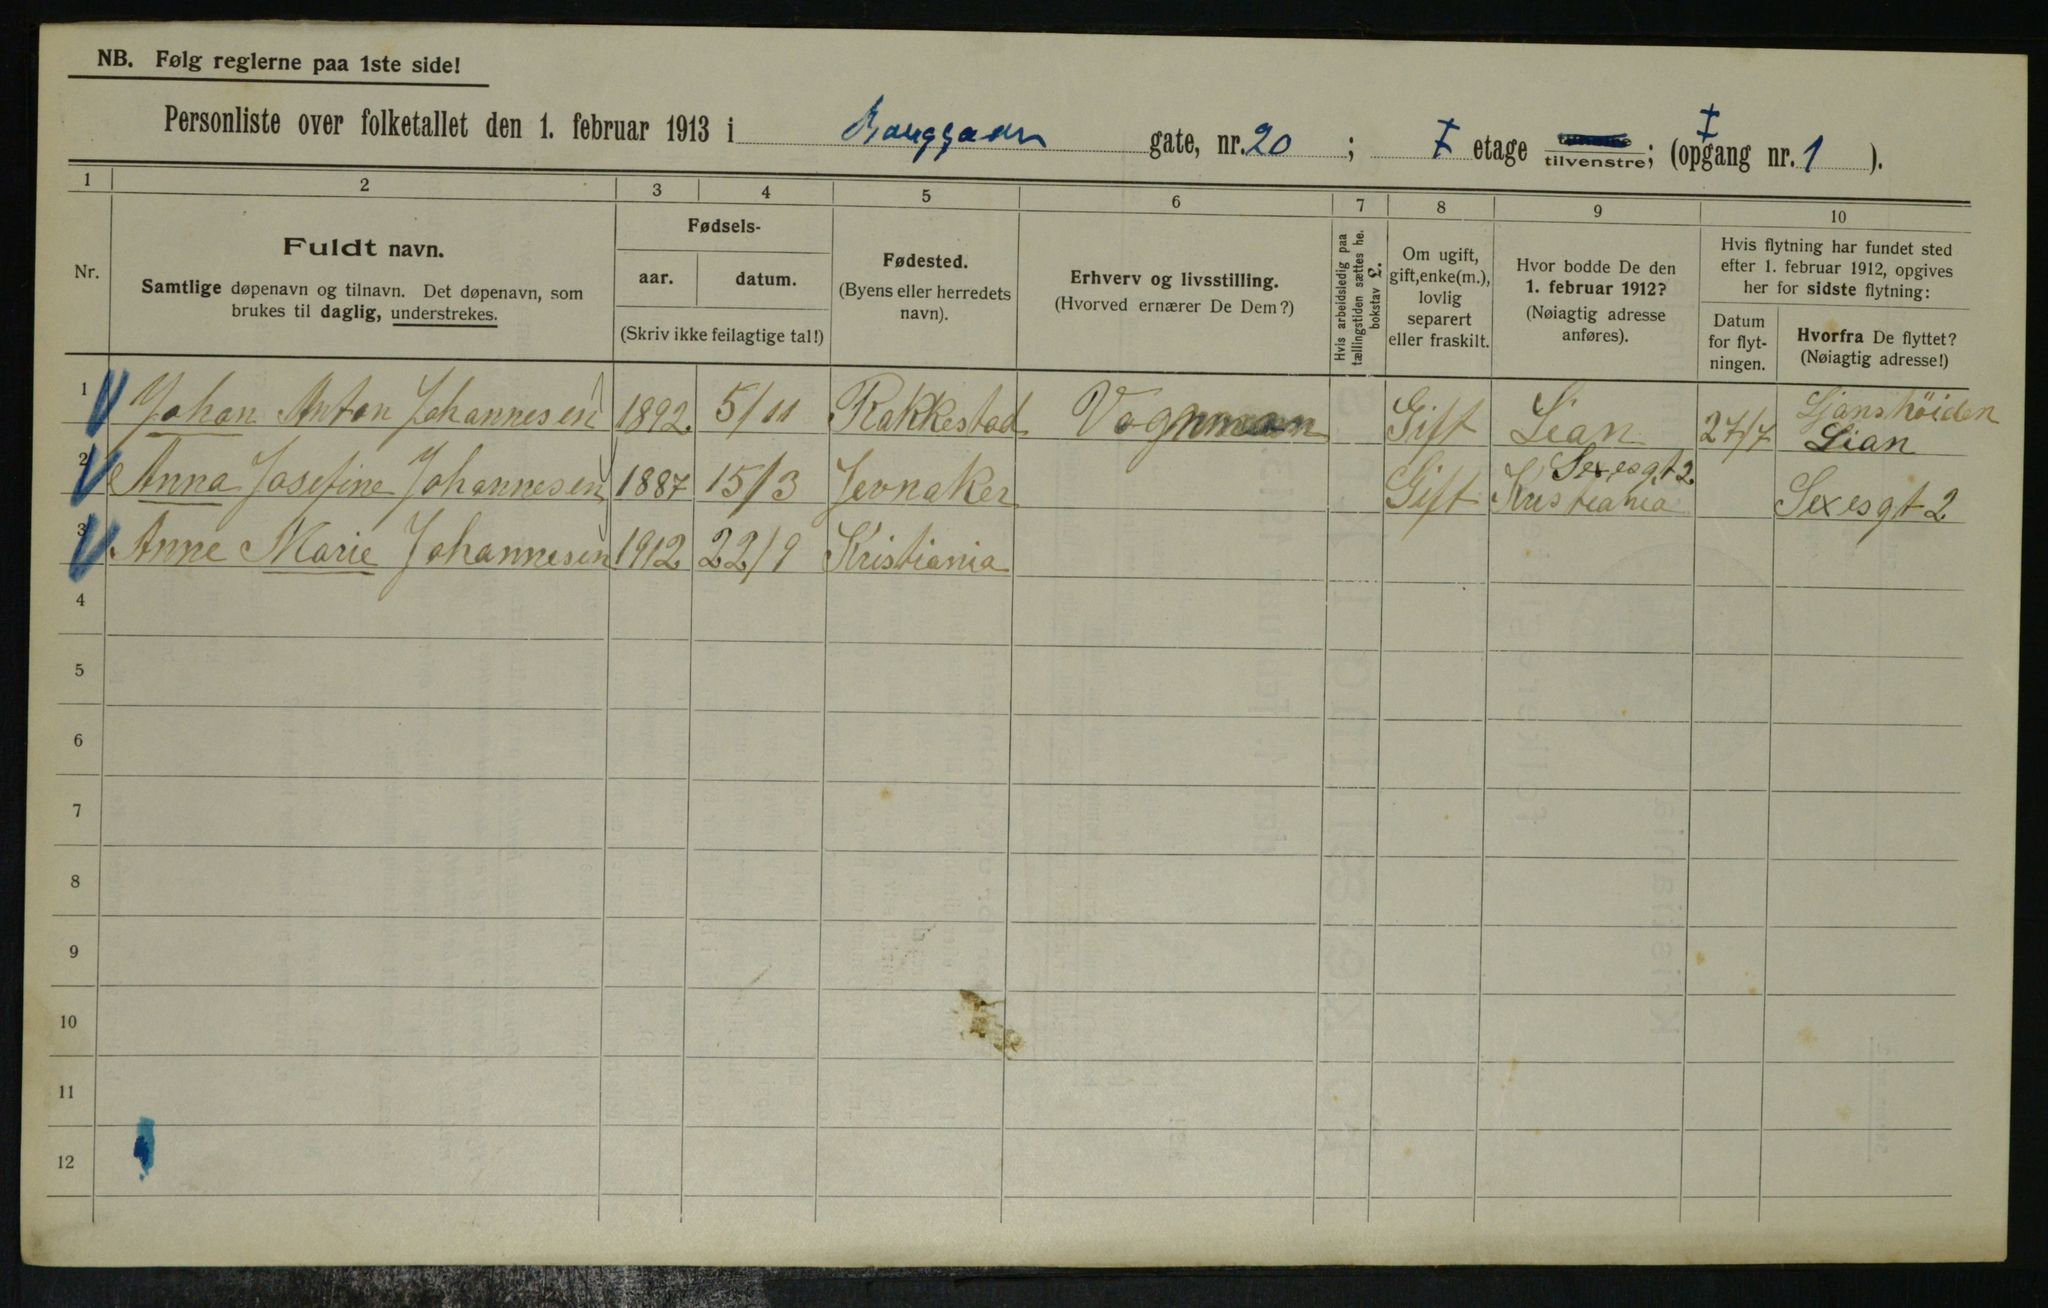 NB. Følg reglerne paa 1ste side!
Personliste over folketallet den 1. februar 1913 i gate, nr. 20 ; I etage tilvenstre; (opgang nr. 1 ).
I
1 2 3 4 5 6 7 8 9 10
Nr.
Fuldt navn.
Samtlige døpenavn og tilnavn. Det døpenavn, som
brukes til daglig, understrekes.
Fødsels-
aar. datum.
(Skriv ikke feilagtige tal!)
Fødested.
(Byens eller herredets
navn).
Erhverv og livsstilling.
(Hvorved ernærer De Dem?)
Hvis arbeidsledig paa
tællingstiden sættes he.
bokstav L.
Om ugift,
gift, enke(m.),
lovlig
separert
eller fraskilt.
Hvor bodde De den
1. februar 1912?
(Nøiagtig adresse
anføres).
Hvis flytning har fundet sted
efter 1. februar 1912, opgives
her for sidste flytning:
Datum
for flyt-
ningen.
Hvorfra De flyttet?
(Nøiagtig adresse!)
1 Johan Anton Johannesen 1892. 5/11 Rakkestad Vognmann Gift Lian 27/7 Ljanshöiden
Lian
2 Anna Josefine Johannesen 1887 15/3 Jevnaker Gift Sexesgt 2.
Kristiania Sexesgt 2
3 Anne Marie Johannesen 1912 22/9 Kristiania
4
5
6
7
8
9
10
11
12